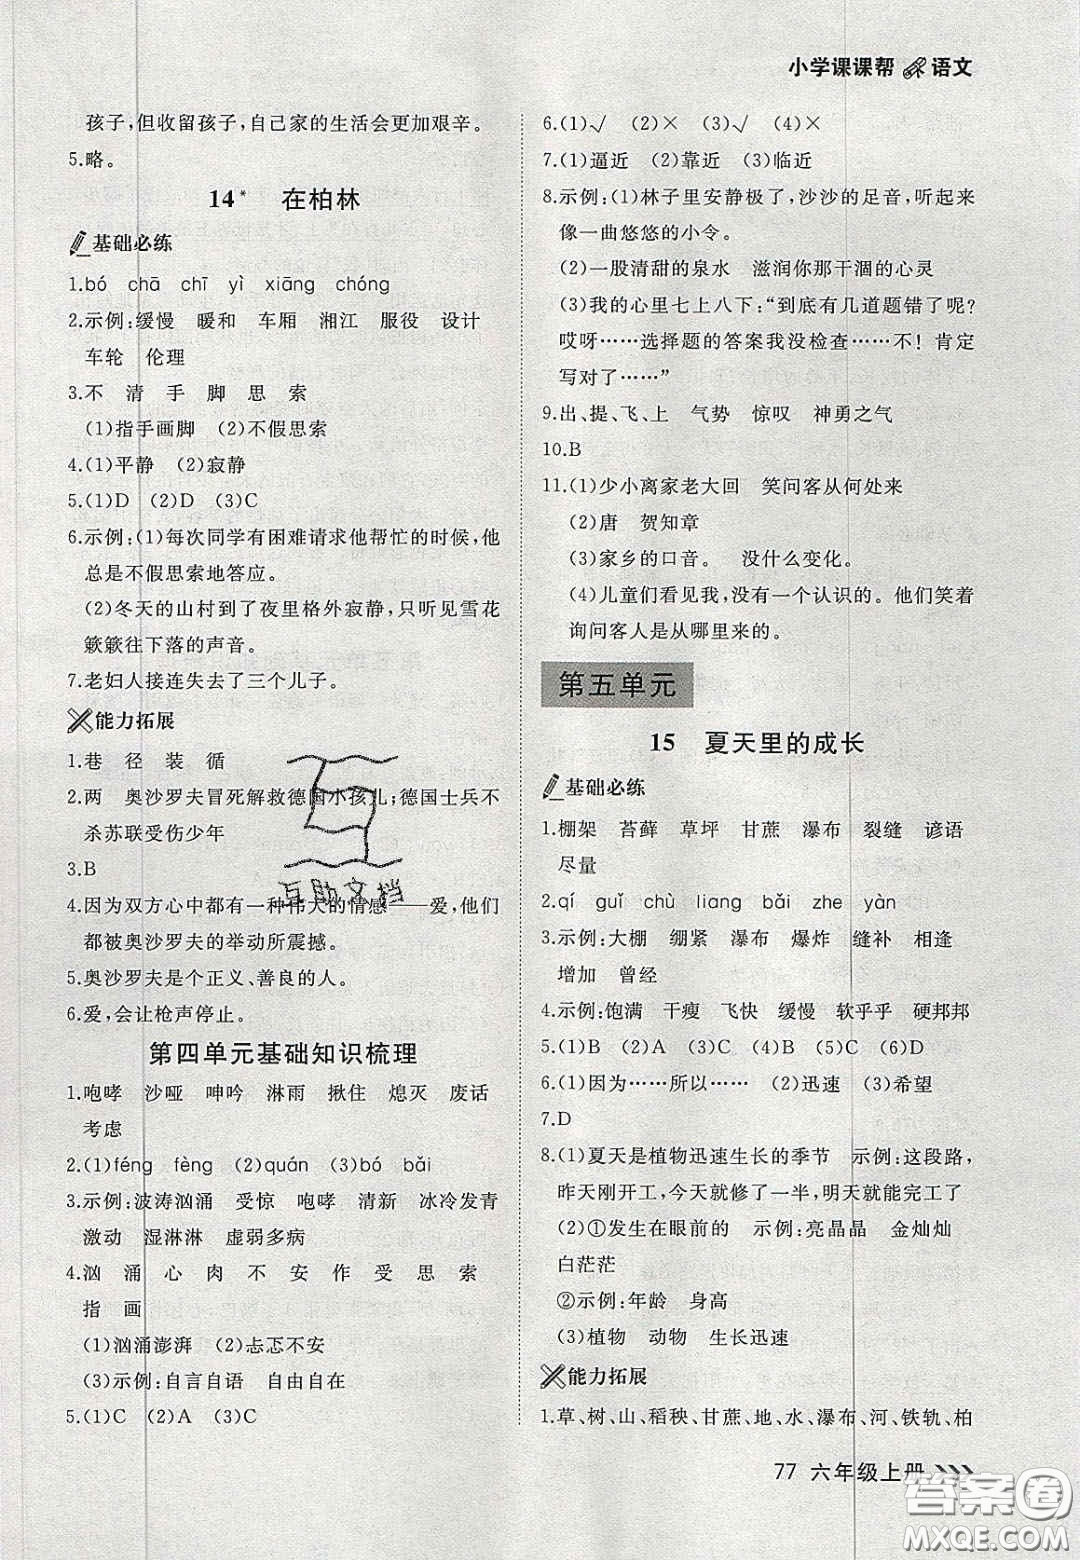 小学课课帮 语文
孩子,但收留孩子,自己家的生活会更加艰辛。
5.略。
14* 在柏林
基础必练
1.bó chā chī yì xiāng chóng
2.示例:缓慢 暖和 车厢 湘江 服役 设计
车轮 伦理
3.不 清 手 脚 思 索
(1)指手画脚 (2)不假思索
4.(1)平静 (2)寂静
5.(1)D (2)D (3)C
6.示例:(1)每次同学有困难请求他帮忙的时候,他
总是不假思索地答应。
(2)冬天的山村到了夜里格外寂静,只听见雪花
簌簌往下落的声音。
7.老妇人接连失去了三个儿子。
能力拓展
1.巷 径 装 循
2.两 奥沙罗夫冒死解救德国小孩儿;德国士兵不
杀苏联受伤少年
3.B
4.因为双方心中都有一种伟大的情感——爱,他们
都被奥沙罗夫的举动所震撼。
5.奥沙罗夫是个正义、善良的人。
6.爱,会让枪声停止。
第四单元基础知识梳理
1.咆哮 沙哑 呻吟 淋雨 揪住 熄灭 废话
考虑
2.(1)féng fèng (2)quán (3)bó bǎi
3.示例:波涛汹涌 受惊 咆哮 清新 冰冷发青
激动 湿淋淋 虚弱多病
4.汹 涌 心 肉 不 安 作 受 思 索
指 画
(1)汹涌澎湃 (2)忐忑不安
(3)示例:自言自语 自由自在
5.(1)C (2)A (3)C
6.(1)√ (2)× (3)√ (4)×
7.(1)逼近 (2)靠近 (3)临近
8.示例:(1)林子里安静极了,沙沙的足音,听起来
像一曲悠悠的小令。
(2)一股清甜的泉水 滋润你那干涸的心灵
(3)我的心里七上八下:“到底有几道题错了呢?
哎呀……选择题的答案我没检查……不! 肯定
写对了……”
9.出、提、飞、上 气势 惊叹 神勇之气
10.B
11.(1)少小离家老大回 笑问客从何处来
(2)唐 贺知章
(3)家乡的口音。 没什么变化。
(4)儿童们看见我,没有一个认识的。他们笑着
询问客人是从哪里来的。
第五单元
15 夏天里的成长
基础必练
1.棚架 苔藓 草坪 甘蔗 瀑布 裂缝 谚语
尽量
2.qí guǐ chù liang bǎi zhe yàn
3.示例:大棚 绷紧 瀑布 爆炸 缝补 相逢
增加 曾经
4.示例:饱满 干瘦 飞快 缓慢 软乎乎 硬邦邦
5.(1)B (2)A (3)C (4)D (5)C (6)D
6.(1)因为……所以…… (2)迅速 (3)希望
7.D
8.(1)夏天是植物迅速生长的季节 示例:这段路,
昨天刚开工,今天就修了一半,明天就能完工了
(2)①发生在眼前的 示例:亮晶晶 金灿灿
白茫茫
②示例:年龄 身高
(3)植物 动物 生长迅速
能力拓展
1.草、树、山、稻秧、甘蔗、地、水、瀑布、河、铁轨、柏
77 六年级上册
互助文档
答案圈
MXQE.COM